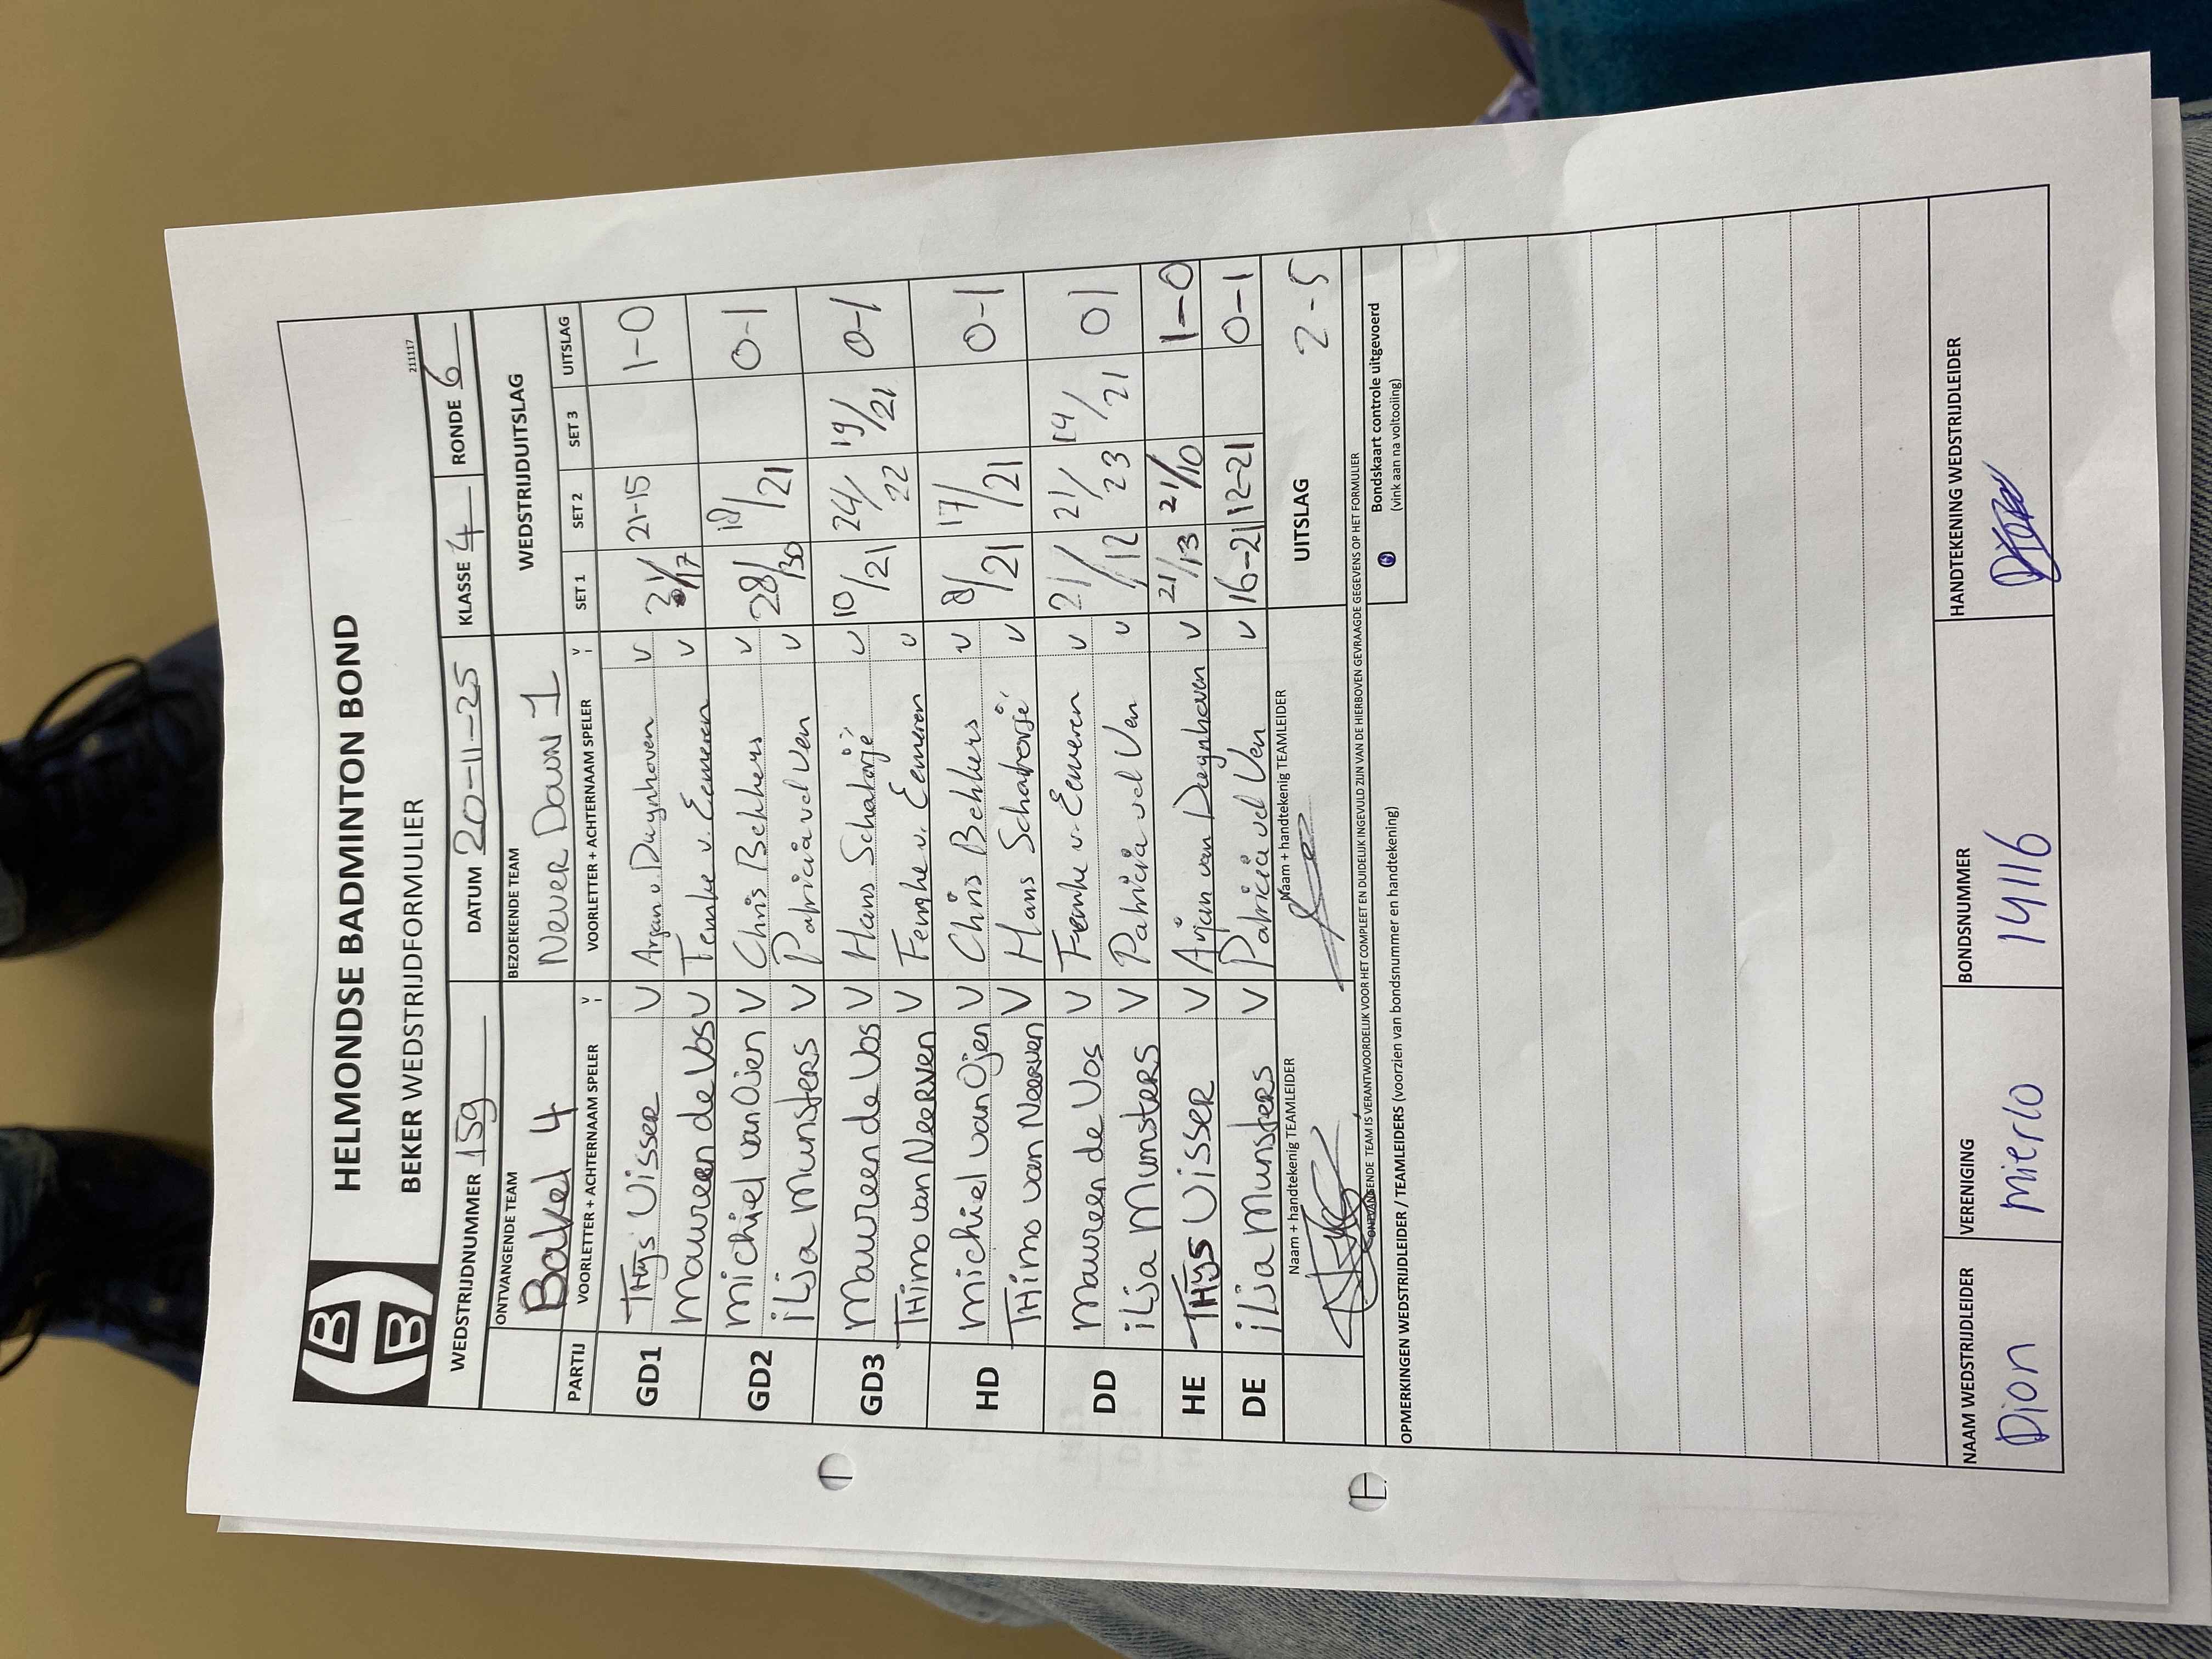 HELMONDSE BADMINTON BOND
BEKER WEDSTRIJDFORMULIER
211117
WEDSTRIJDNUMMER 159 DATUM 20-11-25 KLASSE 4 RONDE 6
ONTVANGENDE TEAM BEZOEKENDE TEAM WEDSTRIJDUITSLAG
Bakel 4 Never Down 1
PARTIJ VOORLETTER + ACHTERNAAM SPELER V VOORLETTER + ACHTERNAAM SPELER V SET 1 SET 2 SET 3 UITSLAG
GD1 THijs Visser V Arjan v. Duynhoven V 21/17 21-15 1-0
maureen de Vos V Femke v. Eemeren V
GD2 michiel van Ojen V Chris Bekkers V 28/30 18/21 0-1
ilja Munsters V Patricia vd Ven V
GD3 Maureen de Vos V Hans Schabrje V 10/21 24/22 19/21 0-1
THimo van Neerven V Femke v. Eemeren V
HD michiel van Ojen V Chris Bekkers V 8/21 17/21 0-1
THimo van Neerven V Hans V
DD maureen de Vos V Femke v. Eemeren V 21/12 21/23 14/21 01
ilja Munsters V Patricia vd Ven V
HE THijs Visser V Arjan van Duynhoven V 21/13 21/10 1-0
DE ilja Munsters V Patricia vd Ven V 16-21 12-21 0-1
Naam + handtekenig TEAMLEIDER Naam + handtekenig TEAMLEIDER UITSLAG 2-5
ONTVANGENDE TEAM IS VERANTWOORDELIJK VOOR HET COMPLEET EN DUIDELIJK INGEVULD ZIJN VAN DE HIERBOVEN GEVRAAGDE GEGEVENS OP HET FORMULIER
Bondskaart controle uitgevoerd
(vink aan na voltooiing)
OPMERKINGEN WEDSTRIJDLEIDER / TEAMLEIDERS (voorzien van bondsnummer en handtekening)
NAAM WEDSTRIJDLEIDER VERENIGING BONDSNUMMER HANDTEKENING WEDSTRIJDLEIDER
Dion mierlo 141116